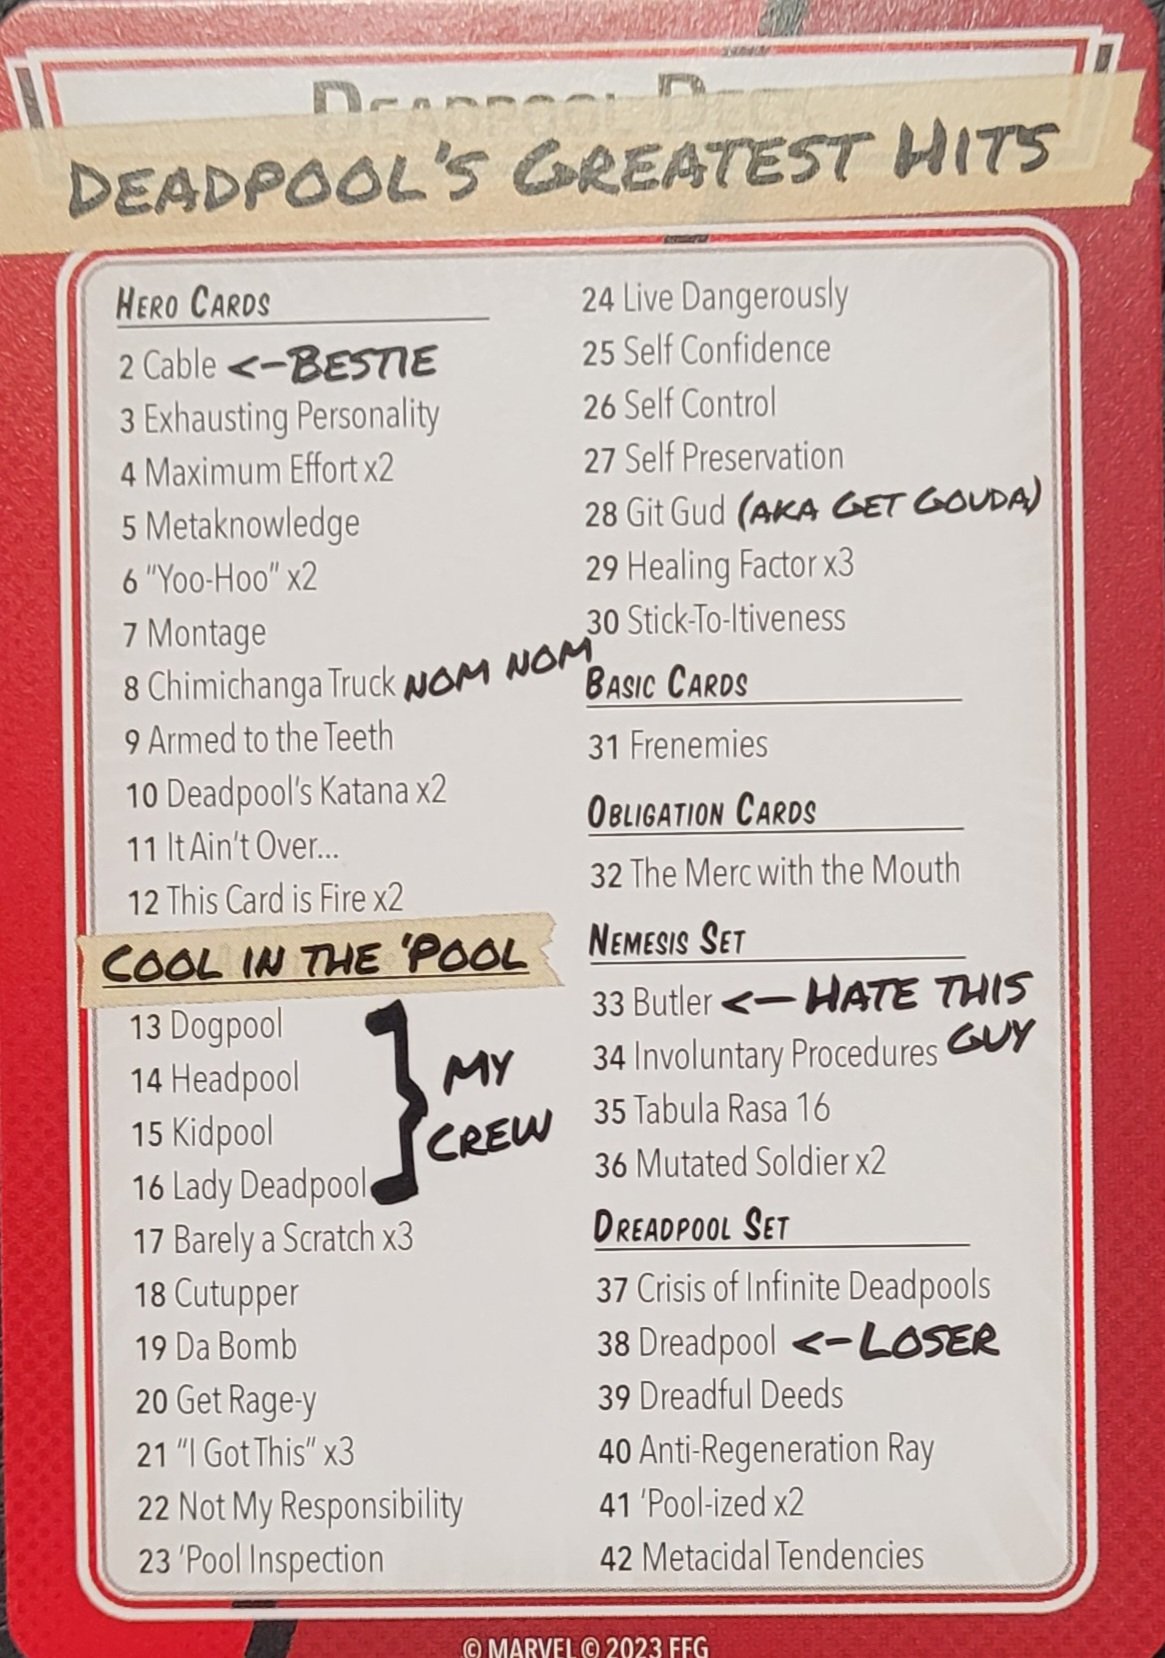 DEADPOOL DECK
DEADPOOL'S GREATEST HITS
HERO CARDS
2 Cable <-BESTIE
3 Exhausting Personality
4 Maximum Effort x2
5 Metaknowledge
6 "Yoo-Hoo" x2
7 Montage
8 Chimichanga Truck NOM NOM
9 Armed to the Teeth
10 Deadpool's Katana x2
11 It Ain't Over...
12 This Card is Fire x2
COOL IN THE 'POOL
13 Dogpool
14 Headpool
15 Kidpool
16 Lady Deadpool
MY
CREW
17 Barely a Scratch x3
18 Cutupper
19 Da Bomb
20 Get Rage-y
21 "I Got This" x3
22 Not My Responsibility
23 'Pool Inspection
24 Live Dangerously
25 Self Confidence
26 Self Control
27 Self Preservation
28 Git Gud (AKA GET GOUDA)
29 Healing Factor x3
30 Stick-To-Itiveness
BASIC CARDS
31 Frenemies
OBLIGATION CARDS
32 The Merc with the Mouth
NEMESIS SET
33 Butler <- HATE THIS
GUY
34 Involuntary Procedures
35 Tabula Rasa 16
36 Mutated Soldier x2
DREADPOOL SET
37 Crisis of Infinite Deadpools
38 Dreadpool <-LOSER
39 Dreadful Deeds
40 Anti-Regeneration Ray
41 'Pool-ized x2
42 Metacidal Tendencies
© MARVEL © 2023 FFG